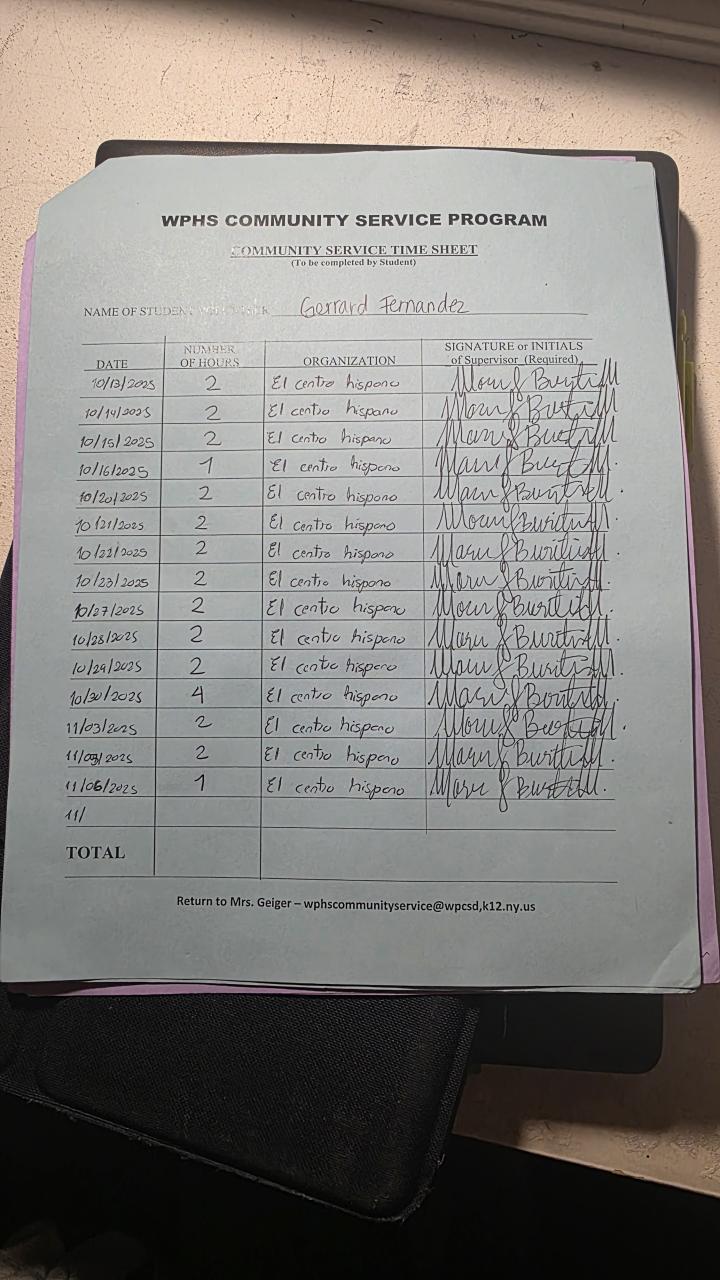 WPHS COMMUNITY SERVICE PROGRAM
COMMUNITY SERVICE TIME SHEET
(To be completed by Student)
NAME OF STUDENT Gerrard Fernandez
DATE NUMBER OF HOURS ORGANIZATION SIGNATURE or INITIALS of Supervisor (Required)
10/13/2025 2 El centro hispano
10/14/2025 2 El centro hispano
10/15/2025 2 El centro hispano
10/16/2025 1 El centro hispano
10/20/2025 2 El centro hispano
10/21/2025 2 El centro hispano
10/22/2025 2 El centro hispano
10/23/2025 2 El centro hispano
10/27/2025 2 El centro hispano
10/28/2025 2 El centro hispano
10/29/2025 2 El centro hispano
10/30/2025 4 El centro hispano
11/03/2025 2 El centro hispano
11/05/2025 2 El centro hispano
11/06/2025 1 El centro hispano
11/
TOTAL
Return to Mrs. Geiger – wphscommunityservice@wpcsd,k12.ny.us